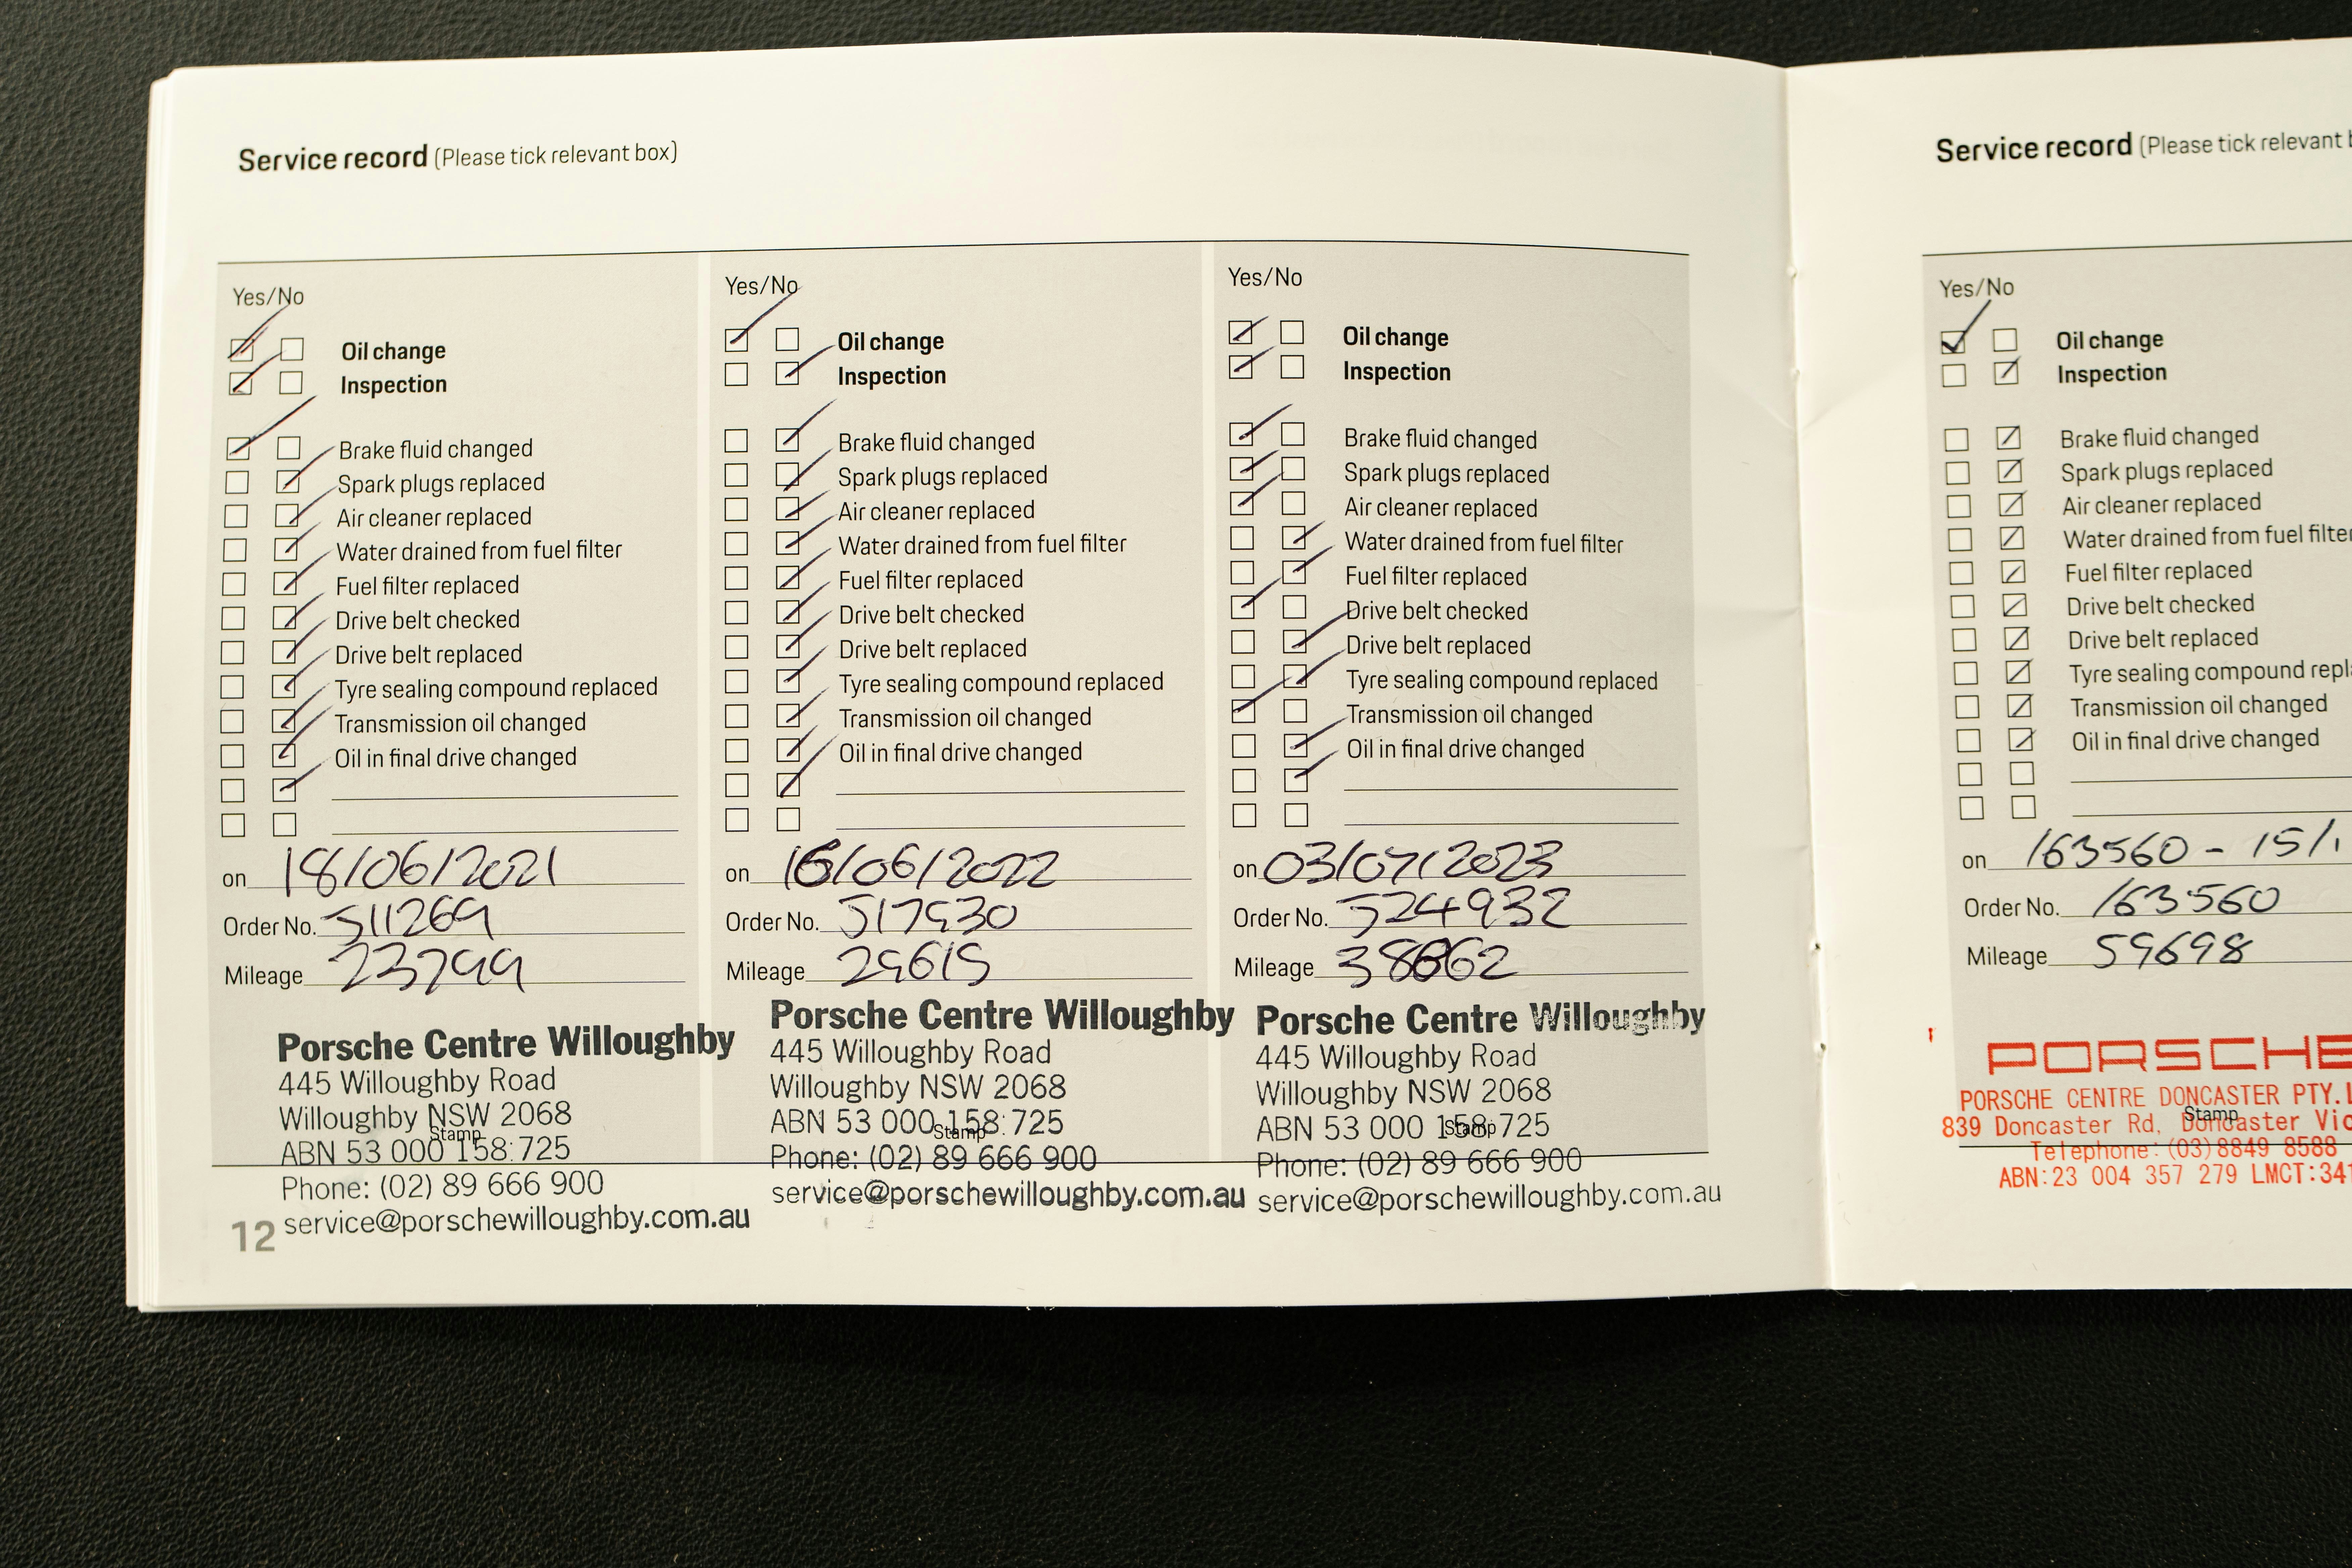 Service record (Please tick relevant box)
Yes/No
Oil change
Inspection
Brake fluid changed
Spark plugs replaced
Air cleaner replaced
Water drained from fuel filter
Fuel filter replaced
Drive belt checked
Drive belt replaced
Tyre sealing compound replaced
Transmission oil changed
Oil in final drive changed
on 18/06/2021
Order No. 511269
Mileage 23799
Porsche Centre Willoughby
445 Willoughby Road
Willoughby NSW 2068
Stamp
ABN 53 000 158 725
Phone: (02) 89 666 900
service@porschewilloughby.com.au
12
Yes/No
Oil change
Inspection
Brake fluid changed
Spark plugs replaced
Air cleaner replaced
Water drained from fuel filter
Fuel filter replaced
Drive belt checked
Drive belt replaced
Tyre sealing compound replaced
Transmission oil changed
Oil in final drive changed
on /06/2022
Order No. 517930
Mileage 29615
Porsche Centre Willoughby
445 Willoughby Road
Willoughby NSW 2068
ABN 53 000 158 725
Stamp
Phone: (02) 89 666 900
service@porschewilloughby.com.au
Yes/No
Oil change
Inspection
Brake fluid changed
Spark plugs replaced
Air cleaner replaced
Water drained from fuel filter
Fuel filter replaced
Drive belt checked
Drive belt replaced
Tyre sealing compound replaced
Transmission oil changed
Oil in final drive changed
on 03/07/2023
Order No. 524932
Mileage
Porsche Centre Willoughby
445 Willoughby Road
Willoughby NSW 2068
ABN 53 000 158 725
Stamp
Phone: (02) 89 666 900
service@porschewilloughby.com.au
Service record (Please tick relevant
Yes/No
Oil change
Inspection
Brake fluid changed
Spark plugs replaced
Air cleaner replaced
Water drained from fuel filter
Fuel filter replaced
Drive belt checked
Drive belt replaced
Tyre sealing compound repl
Transmission oil changed
Oil in final drive changed
on 163560 - 15/1
Order No. 163560
Mileage 59698
PORSCHE
PORSCHE CENTRE DONCASTER PTY.L
Stamp
839 Doncaster Rd, Doncaster Vic
Telephone: (03) 8849 8588
ABN:23 004 357 279 LMCT:341